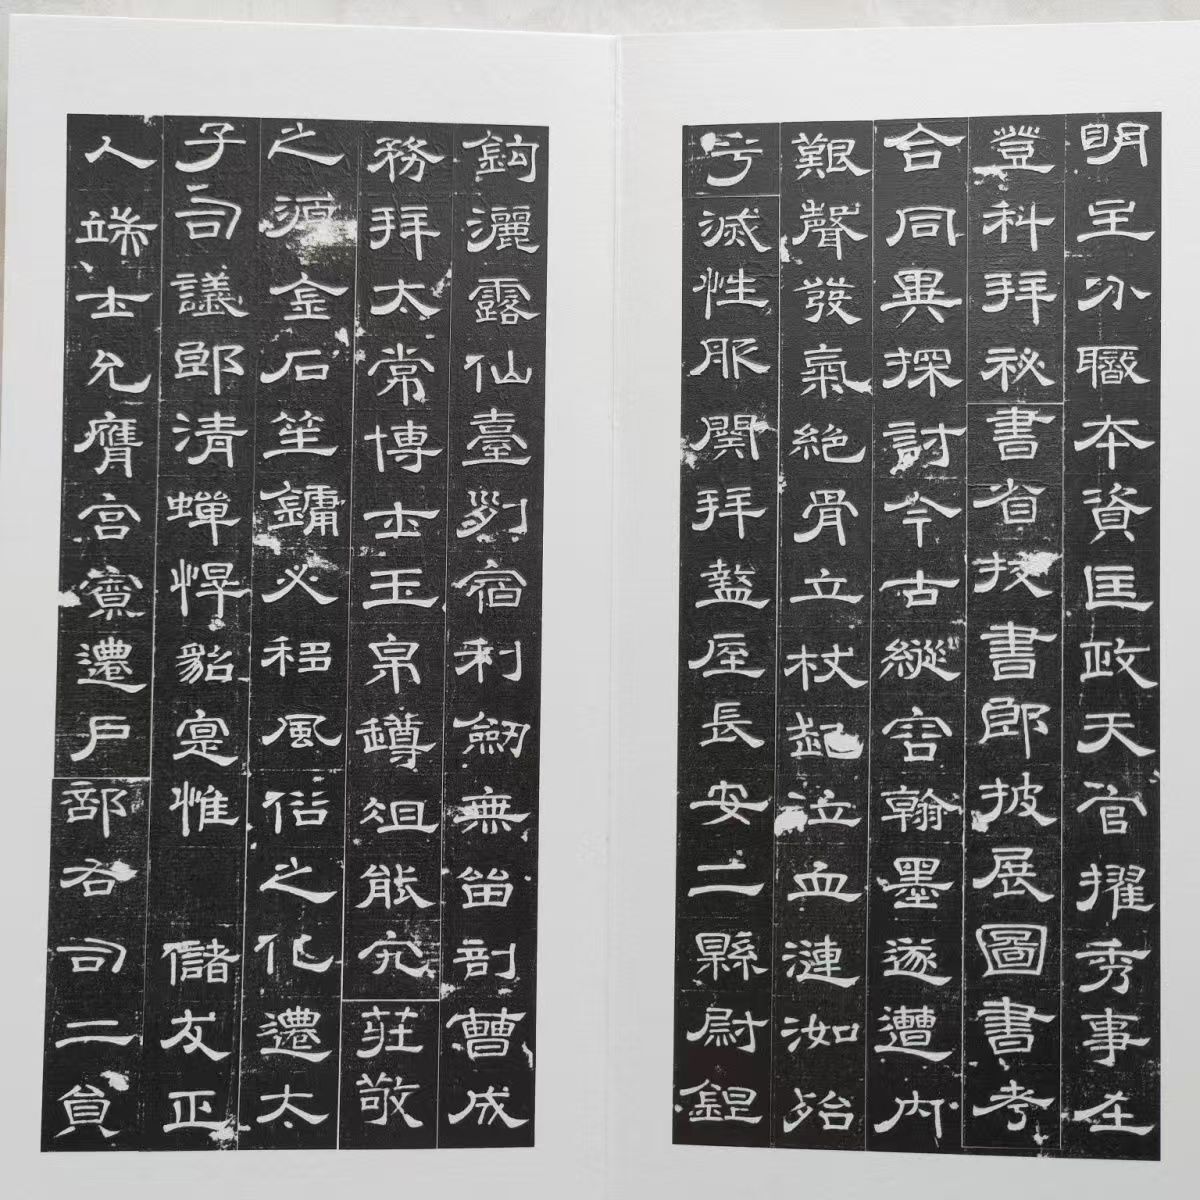 明主分職本資匡政天官擢秀事在
登科拜祕書省校書郎披展圖書考
合同異探討今古縱容翰墨遂遭內
艱聲發氣絕骨立杖起泣血漣洳殆
乎滅性服闋拜盩厔長安二縣尉鋥
鉤灑露仙臺列宿利劍無留剖曹成
務拜太常博士玉帛罇俎能究莊敬
之源金石笙鏞必移風俗之化遷太
子司議郎清蟬悍貂寔惟 儲友正
人端士允膺宮寮遷戶部右司二員